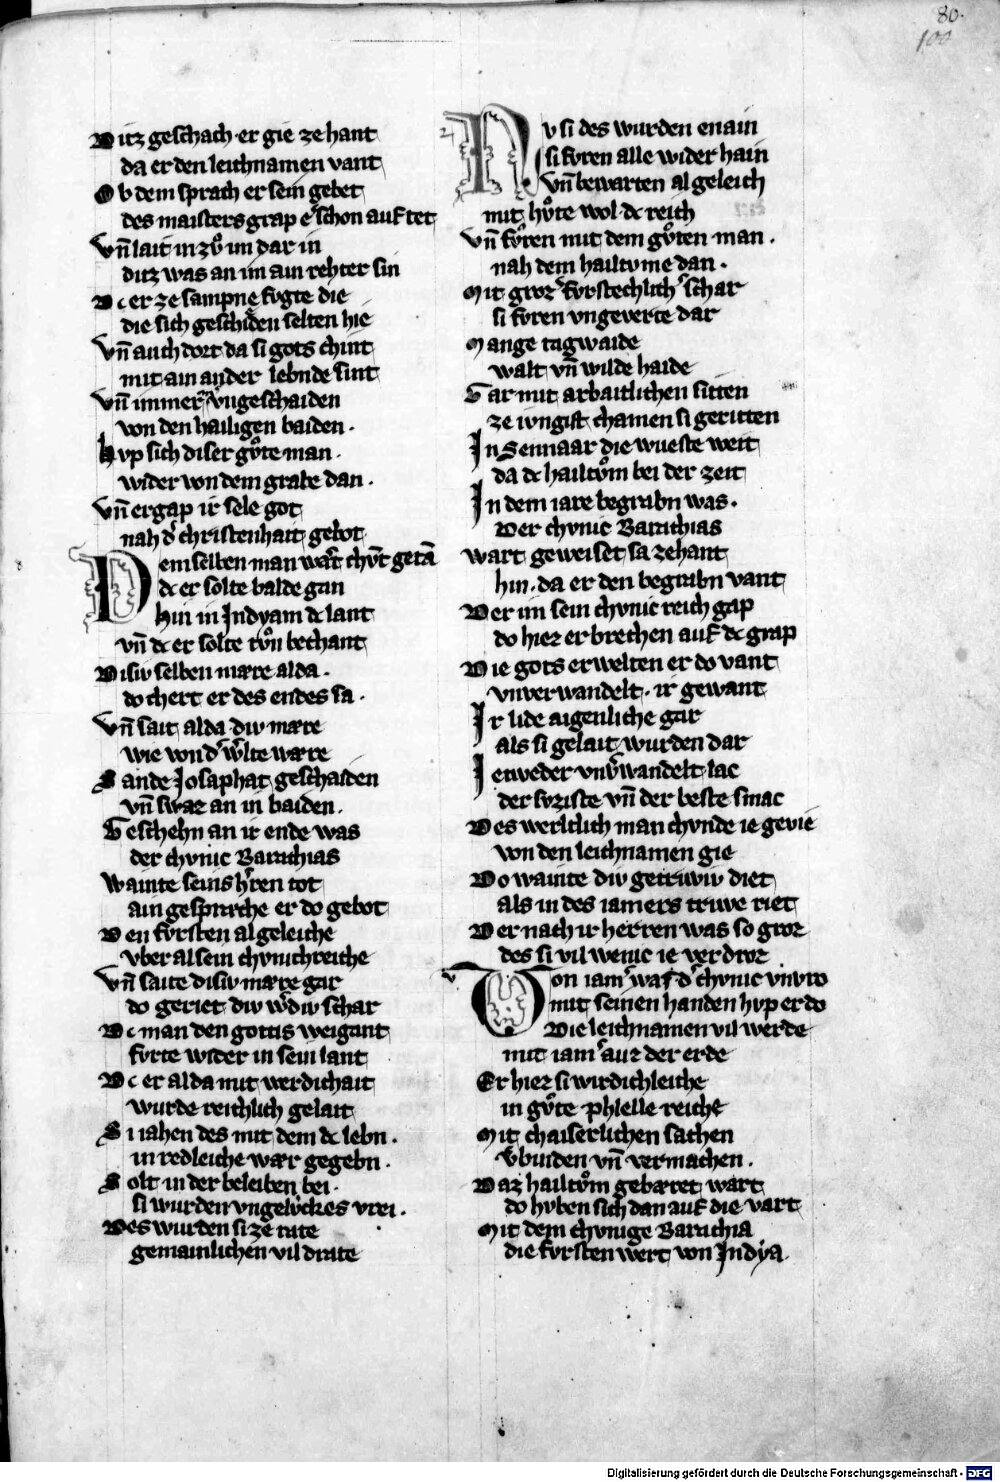 80.
100
Ditz geschach er gie ze hant
da er den leichnamen vant
Ob dem sprach er sein gebet
des maisters grap er schon auf tet
Vn̄ lait in zvͦ im dar in
ditz was an im ain rehter sin
Dc er ze sampne fvgte die
die sich geschiden selten hie
Vn̄ auch dort da si gots chint
mit ain ander lebnde sint
Vn̄ immer vngeschaiden
von den hailigen baiden .
Hvp sich diser gvͦte man .
wider von dem grabe dan .
Vn̄ ergap ir sele got
nah dˀ christenhait gebot
Dem selben man wart chvͦt getā
dc er solte balde gan
Hin in Indyam dc lant
vn̄ dc er solte tvͦn bechant
Disiv selben mære alda .
do chert er des endes sa .
Vn̄ sait alda div mære
wie von dˀ wˀlte wære
Sande Josaphat geschaiden
vn̄ swaz an in baiden .
Geschehn an ir ende was
der chvnic Barachias
Wainte seins hˀren tot
ain gespræche er do gebot
Den fvrsten al geleiche
vber al sein chvnichreiche
Vn̄ saite disiv mære gar
do geriet div wˀdiv schar
Dc man den gottis weigant
fvrte wider in sein lant
Dc er alda mit werdichait
wurde reichlich gelait
Si iahen des mit dem dc lebn .
in redleiche wær gegebn .
Solt in der beleiben bei .
si wurden vngelvckes vrei .
Des wurden si ze rate
gemainlichen vil drate
Nv si des wurden enain
si fvren alle wider hain
Vn̄ bewarten al geleich
mit hvͦte wol dc reich
Vn̄ fvͦren mit dem gvͦten man .
nah dem hailtvme dan .
Mit grozˀ fvrstechlichˀ schar
si fvren vngeverte dar
Mange tagwaide
walt vn̄ wilde haide
Gar mit arbaitlichen sitten
ze ivngist chamen si geritten
In Sennaar die wueste weit
da dc hailtvͦm bei der zeit
In dem iare begrabn was .
Der chvnic Barachias
wart geweiset sa zehant
hin . da er den begrabn vant
Der im sein chvnic reich gap
do hiez er brechen auf dc grap
Die gots erwelten er do vant
vnverwandelt . ir gewant
Ir lide aigenliche gar
als si gelait wurden dar
Ietweder vnvˀwandelt lac
der svziste vn̄ der beste smac
Des werltlich man chvnde ie gevie
von den leichnamen gie
Do wainte div getriwiv diet
als in des iamers triwe riet
Der nach ir herren was so groz
des si vil wenic ie verdroz
Von iamˀ was dˀ chvnic vnvro
mit seinen handen hvp er do
Die leichnamen vil werde
mit iamˀ auz der erde
Er hiez si wirdichleiche
in gvͦte phlelle reiche
Mit chaiserlichen sachen
vˀbinden vn̄ vermachen .
Daz hailtvͦm gebæret wart
do hvben sich dan auf die vart
Mit dem chvnige Barachia
die fvrsten wert von Indya .
Digitalisierung gefördert durch die Deutsche Forschungsgemeinschaft - DFG